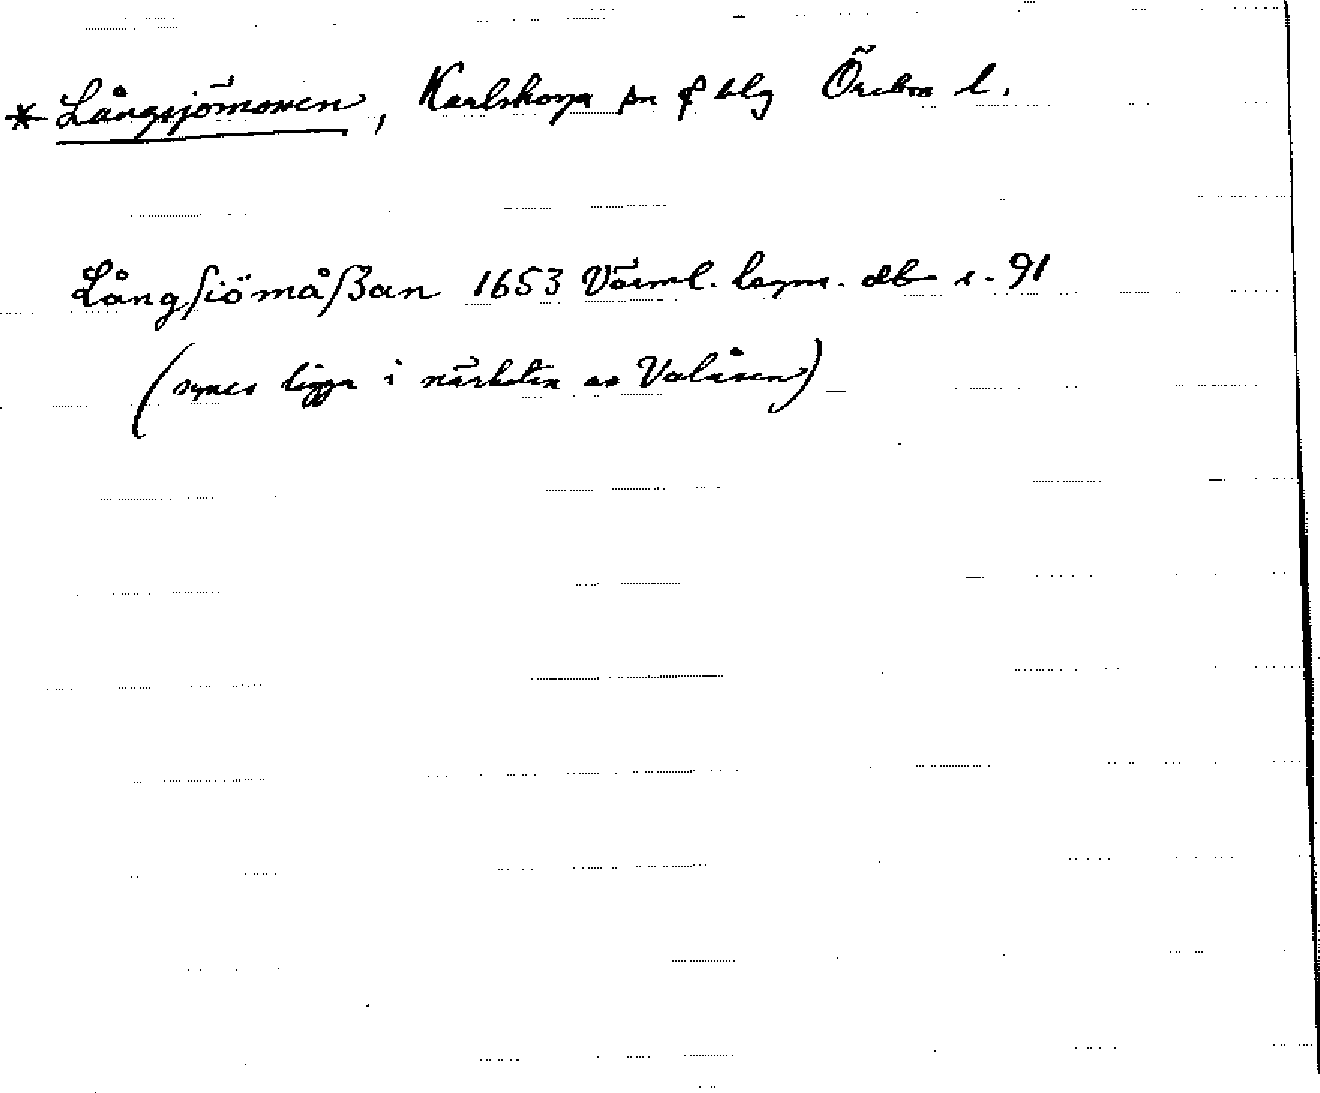 * Långsjömossen, Karlskoga sn o blg Örebro l.
Långſiömåßan 1653 Värml. bergm. db s. 91
(synes ligga i närheten av Valåsen)